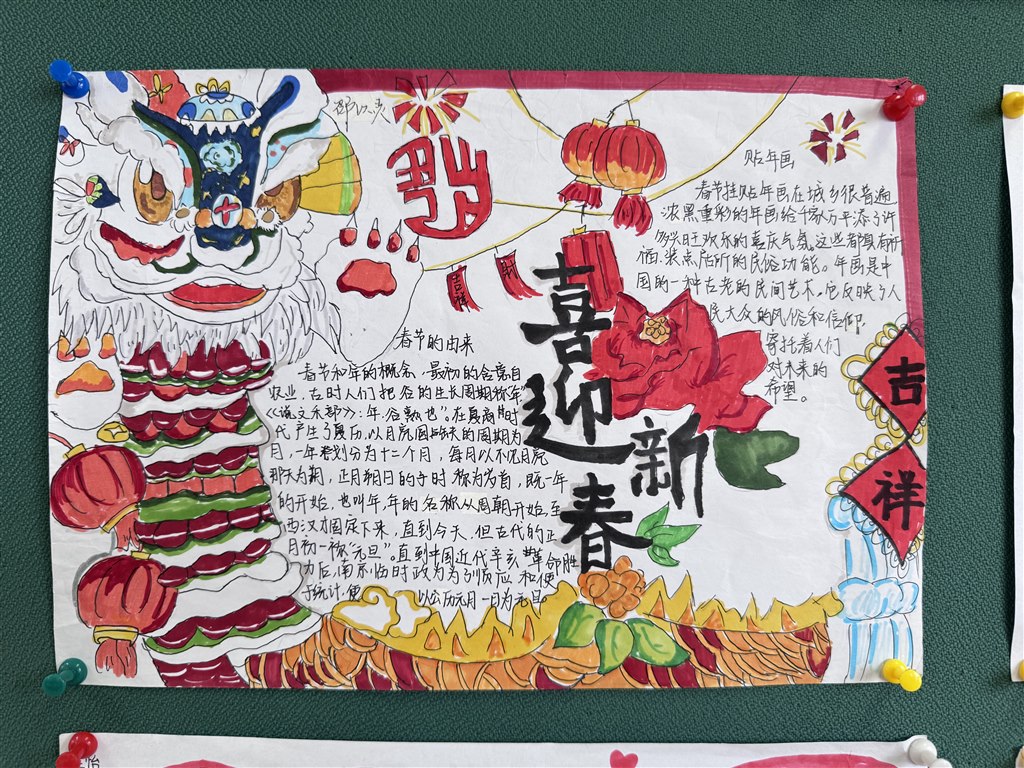 喜迎新春
吉祥
春节的由来
春节和年的概念、最初的含意自
农业，古时人们把谷的生长周期称"年"
《说文禾部》：年，谷熟也"。在夏商时
代产生了夏历，以月亮圆缺的周期为
月，一年划分为十二个月，每月以不见月亮
那天为朔，正月朔日的子时称为岁首，既一年
的开始，也叫年，年的名称从周朝开始，至
西汉才固定下来，直到今天，但古代的正
月初一称"元旦"。直到中国近代辛亥"革命胜
力后，南京临时政为为了顺应和便
于统计，便 以公历元月一日为元旦。
贴年画
春节挂贴年画在城乡很普遍
浓黑重彩的年画给千家万户平添了许
多兴旺欢乐的喜庆气氛，这些都具有
装点居所的民俗功能。年画是中
国的一种古老的民间艺术，它反映了人
民大众的风俗和信仰，
寄托着人们
对未来的
希望。
吉
祥